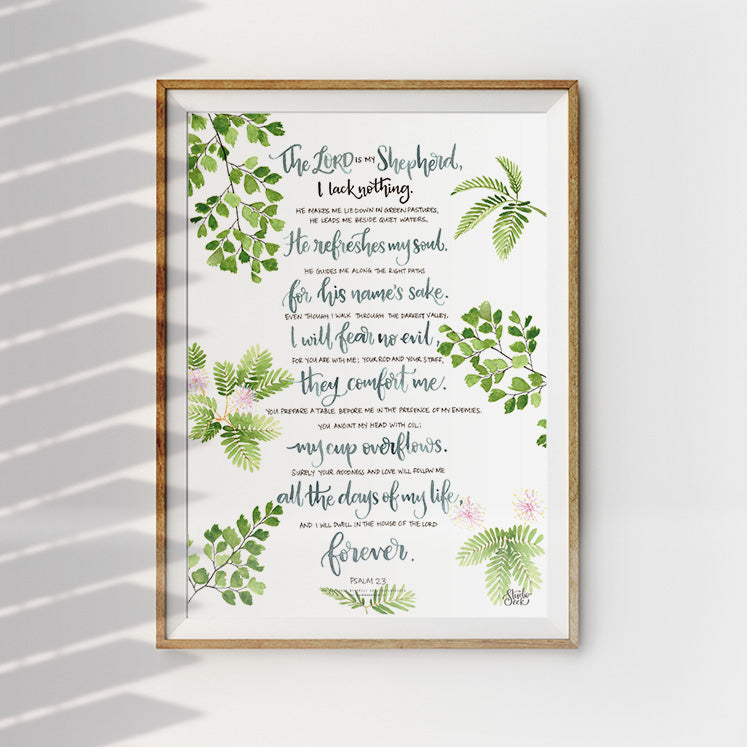 The LORD IS MY Shepherd,
I lack nothing.
HE MAKES ME LIE DOWN IN GREEN PASTURES,
HE LEADS ME BESIDE QUIET WATERS,
He refreshes my soul.
HE GUIDES ME ALONG THE RIGHT PATHS
for his name's sake.
EVEN THOUGH I WALK THROUGH THE DARKEST VALLEY,
I will fear no evil,
FOR YOU ARE WITH ME; YOUR ROD AND YOUR STAFF,
they comfort me.
YOU PREPARE A TABLE BEFORE ME IN THE PRESENCE OF MY ENEMIES.
YOU ANOINT MY HEAD WITH OIL;
my cup overflows.
SURELY YOUR GOODNESS AND LOVE WILL FOLLOW ME
all the days of my life,
AND I WILL DWELL IN THE HOUSE OF THE LORD
forever.
PSALM 23